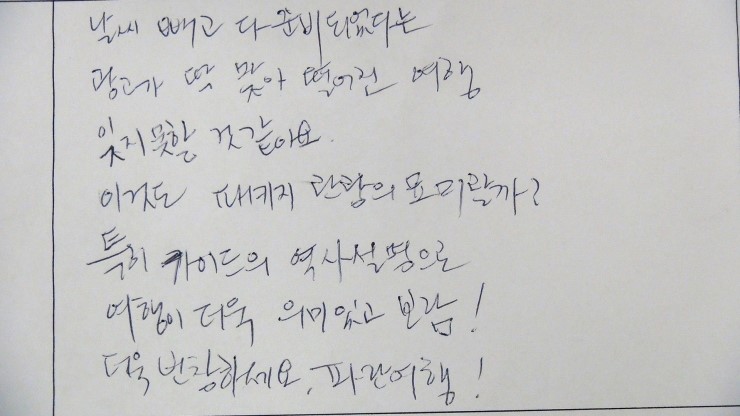 날씨 빼고 다 준비되었다는
광고가 딱 맞아 떨어진 여행
잊지못할 것 같아요.
이것도 패키지 관광의 묘미랄까?
특히 가이드의 역사설명으로
여행이 더욱 의미있고 보람!
더욱 번창하세요, 파란여행!